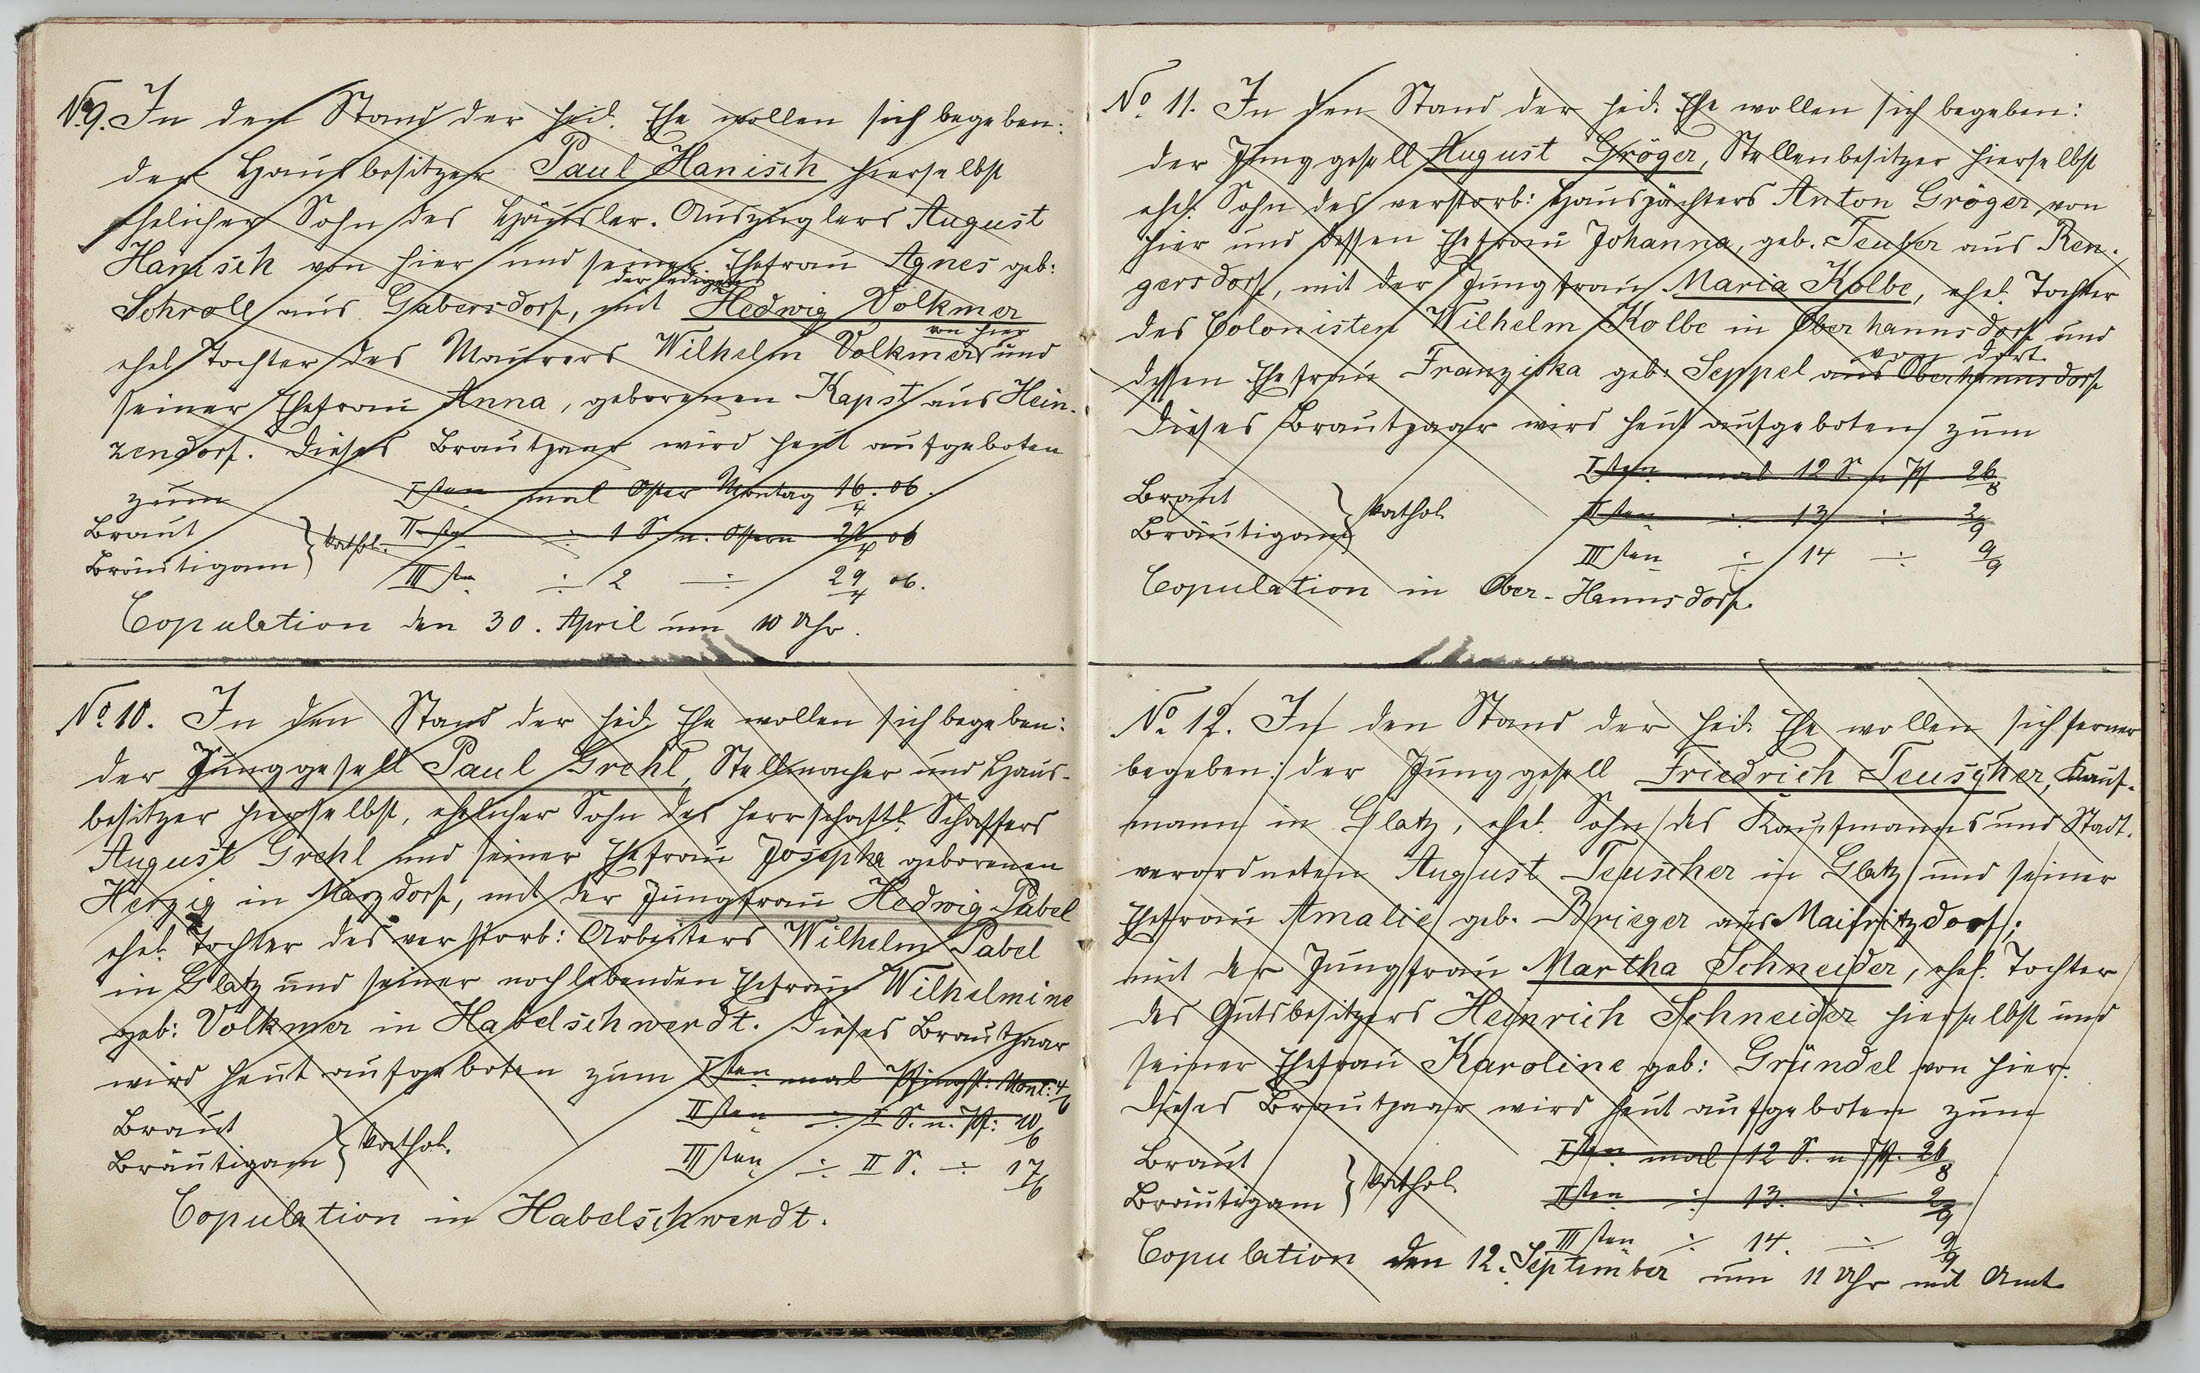 No 9. In den Stand der heil. Ehe wollen sich begeben:
der Hausbesitzer Paul Hanisch hierselbst
ehelicher Sohn des Häusler-Auszüglers August
Hanisch von hier und seiner Ehefrau Agnes geb:
der ledigen
Schroll aus Gabersdorf, mit Hedwig Volkmer
von hier
ehel. Tochter des Maurers Wilhelm Volkmer und
seiner Ehefrau Anna, geborenen Kapst aus Hein-
zendorf. Dieses Brautpaar wird heut aufgeboten
zum Isten mal Oster Montag 16/4. 06.
Braut
Bräutigam } kathol.
IIsten ÷ 1 S. n. Ostern 22/4 06
IIIsten ÷ 2 ÷ 29/4 06.
Copulation den 30. April um 10 Uhr.
No 10. In den Stand der heil. Ehe wollen sich begeben:
der Junggesell Paul Grehl, Stellmacher und Haus-
besitzer hierselbst, ehelicher Sohn des herrschaftl. Schaffers
August Grehl und seiner Ehefrau Josepha geborenen
Herzig in Märzdorf, mit der Jungfrau Hedwig Pabel
ehel. Tochter des verstorb: Arbeiters Wilhelm Pabel
in Glatz und seiner noch lebenden Ehefrau Wilhelmine
geb: Volkmer in Habelschwerdt. Dieses Brautpaar
wird heut aufgeboten zum Isten mal Pfingst: Mont: 4/6
Braut
Bräutigam } kathol.
IIsten ÷ I S. n. Pf: 10/6
IIIsten ÷ II S. ÷ 17/6
Copulation in Habelschwerdt.
No 11. In den Stand der heil. Ehe wollen sich begeben:
der Junggesell August Gröger, Stellenbesitzer hierselbst
ehel. Sohn des verstorb: Hauspächters Anton Gröger von
hier und dessen Ehefrau Johanna, geb. Teuber aus Ren-
gersdorf, mit der Jungfrau Maria Kolbe, ehel. Tochter
des Colonisten Wilhelm Kolbe in Oberhannsdorf und
von dort
dessen Ehefrau Franziska geb: Seppel aus Oberhannsdorf
Dieses Brautpaar wird heut aufgeboten zum
Isten mal 12 S. n. Pf 26/8
Braut
Bräutigam } kathol.
IIsten ÷ 13 ÷ 2/9
IIIsten ÷ 14 ÷ 9/9
Copulation in Ober-Hannsdorf.
No 12. In den Stand der heil. Ehe wollen sich ferner
begeben: der Junggesell Friedrich Teuscher, Kauf-
mann in Glatz, ehel. Sohn des Kaufmanns und Stadt-
verordneten August Teuscher in Glatz und seiner
Ehefrau Amalie geb. Brieger aus Maifritzdorf;
mit der Jungfrau Martha Schneider, ehel. Tochter
des Gutsbesitzers Heinrich Schneider hierselbst und
seiner Ehefrau Karoline geb: Gründel von hier.
Dieses Brautpaar wird heut aufgeboten zum
Isten mal 12 S. n Pf. 26/8
Braut
Bräutigam } kathol.
IIsten ÷ 13. ÷ 2/9
IIIsten ÷ 14. ÷ 9/9
Copulation den 12. September um 11 Uhr mit Amt.